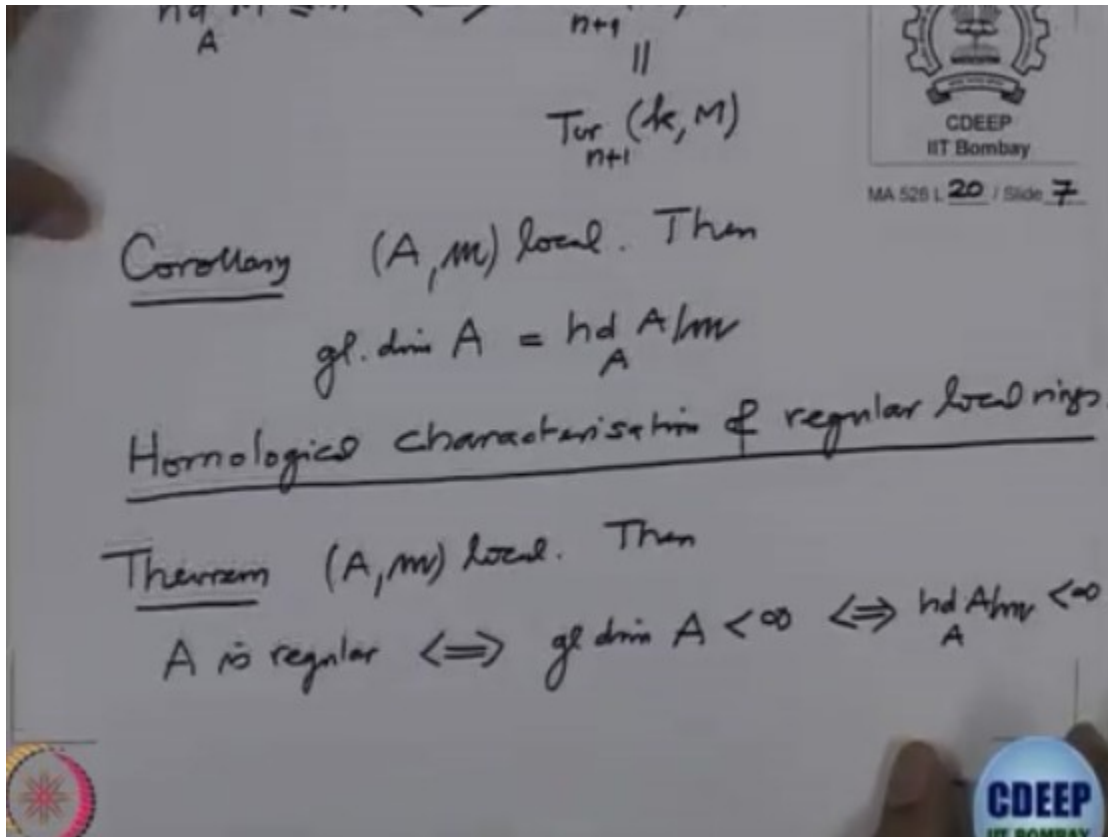 hd M
A
n+1
||
Tor (k, M)
n+1
CDEEP
IIT Bombay
MA 526 L 20 / Slide 7
Corollary (A, m) local. Then
gl. dim A = hd A/m
A
Homological characterisation of regular local rings
Theorem (A, m) local. Then
A is regular <=> gl dim A < ∞ <=> hd A/m < ∞
A
CDEEP
IIT BOMBAY